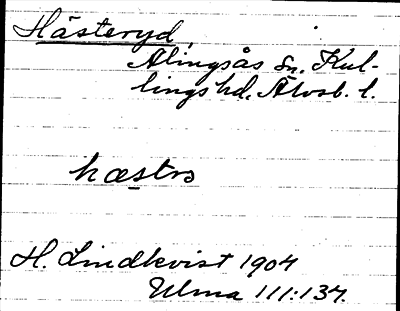 Hästeryd,
Alingsås sn. Kul-
lings hd. Älvsb. l.
hæstrs
H. Lindkvist 1904
Ulma 111:134.